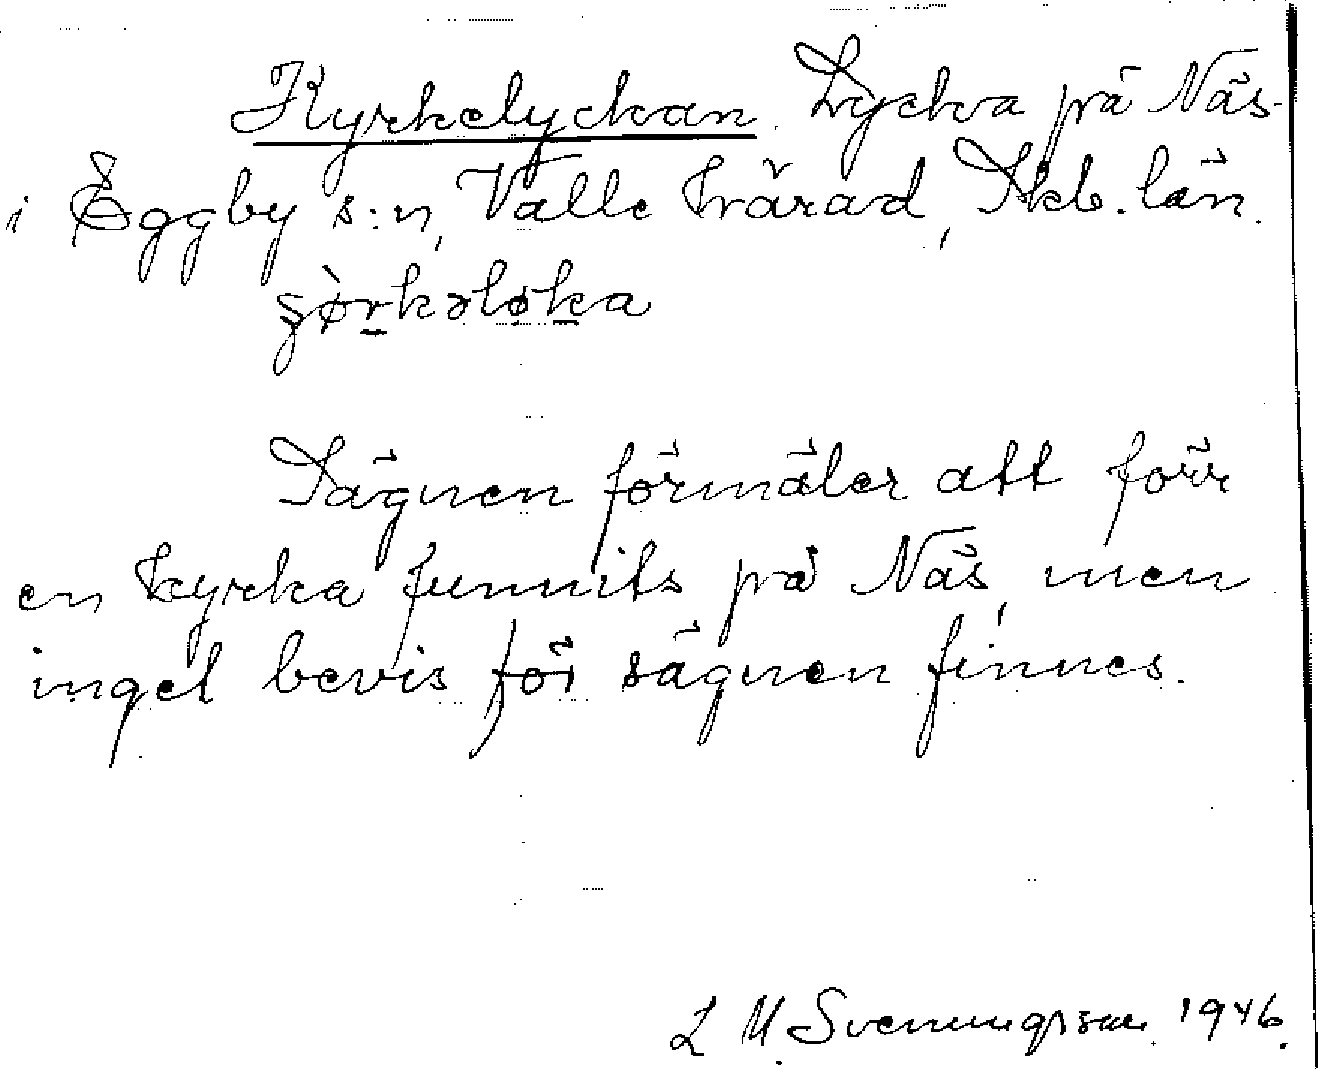 Kyrkelyckan. Lycka på Näs
i Eggby s:n, Valle härad, Skb. län.
Sägnen förmäler att förr
en kyrka funnits på Näs, men
inget bevis för sägnen finnes.
L M. Svenungsson 1946.